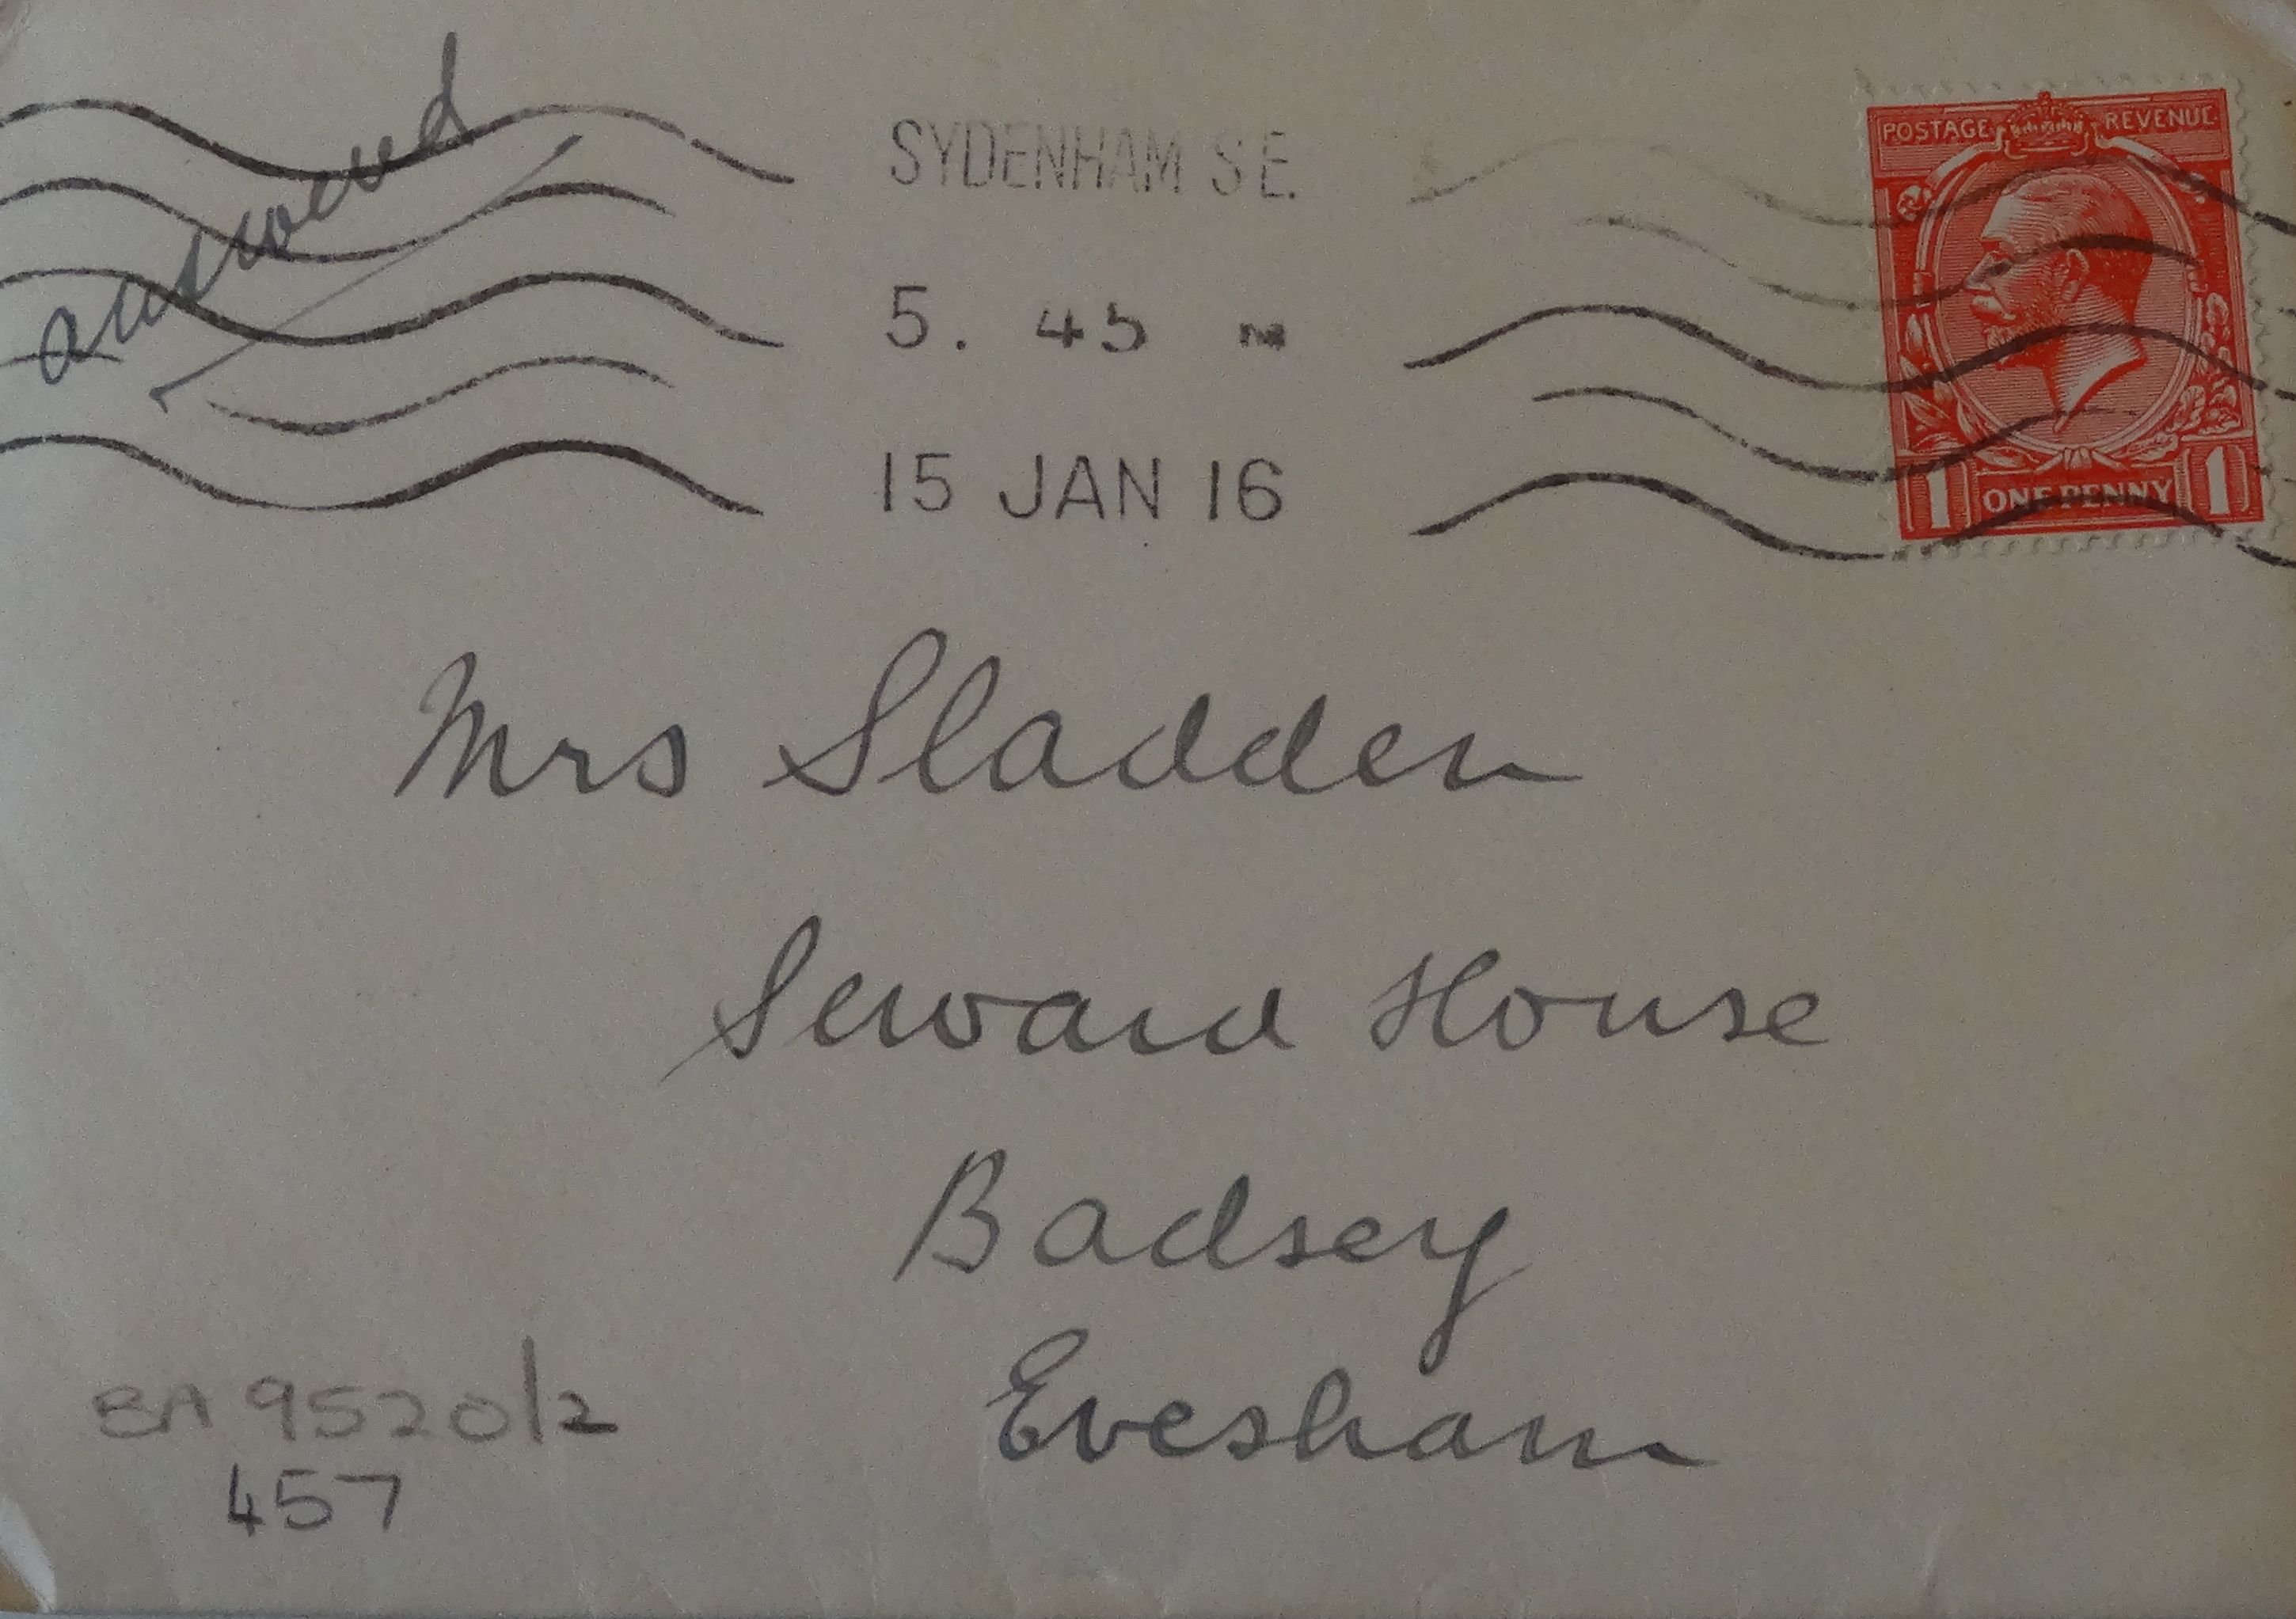 answered
SYDENHAM S.E.
5. 45
15 JAN 16
POSTAGE REVENUE
1 ONE PENNY 1
Mrs Sladden
Seward House
Badsey
Evesham
BA 9520/2
457